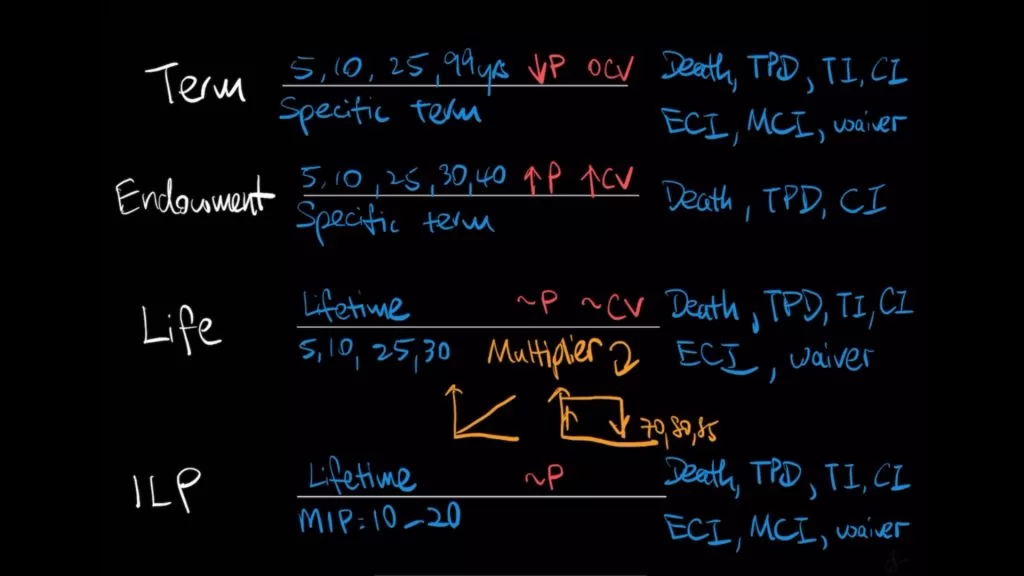 Term 5, 10, 25, 99yrs ↓P 0CV Death, TPD, TI, CI
Specific term ECI, MCI, waiver
Endowment 5, 10, 25, 30, 40 ↑P ↑CV Death, TPD, CI
Specific term
Life Lifetime ~P ~CV Death, TPD, TI, CI
5, 10, 25, 30 Multiplier ECI, waiver
70, 80, 85
ILP Lifetime ~P Death, TPD, TI, CI
MIP: 10-20 ECI, MCI, waiver